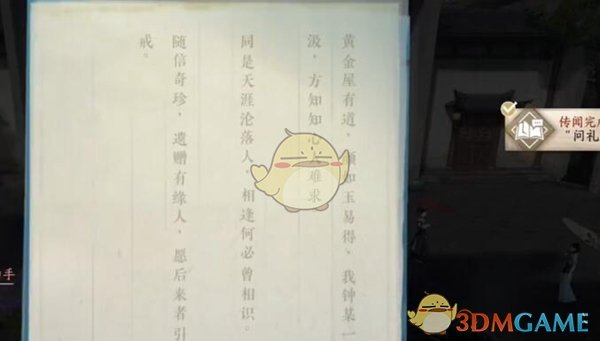 黄金屋有道，颜如玉易得，我钟某一
汲，方知知心难求
同是天涯沦落人，相逢何必曾相识。
随信奇珍，遗赠有缘人，愿后来者引
戒。
传闻完
"问礼
手
3DMGAME